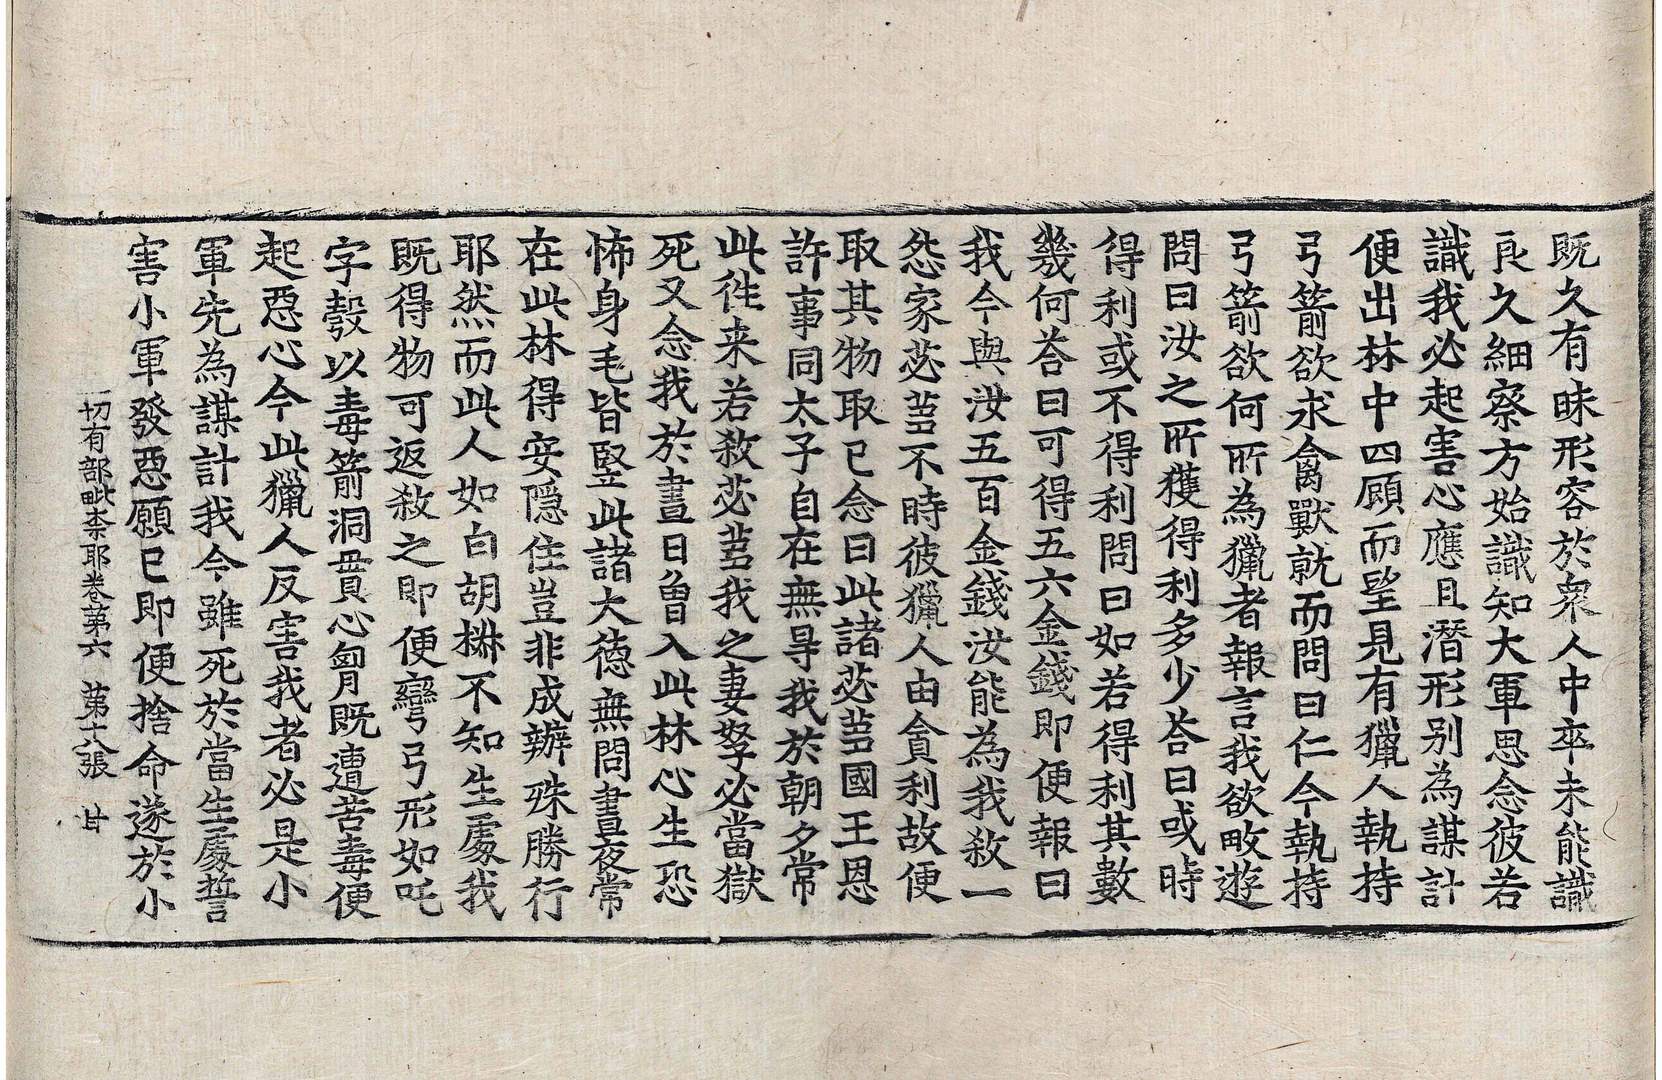 既久有昧形容於衆人中卒未能識
良久細察方始識知大軍思念彼若
識我必起害心應且潛形别為謀計
便出林中四顧而望見有獵人執持
弓箭欲求禽獸就而問曰仁今執持
弓箭欲何所為獵者報言我欲畋遊
問曰汝之所獲得利多少荅曰或時
得利或不得利問曰如若得利其數
幾何荅曰可得五六金錢即便報曰
我今與汝五百金錢汝能為我敘一
怨家苾蒭不時彼獵人由貪利故便
取其物取已念曰此諸苾蒭國王恩
許事同太子自在無㝵我於朝夕常
此徃来若敘苾蒭我之妻孥必當獄
死又念我於晝日曾入此林心生恐
怖身毛皆竪此諸大德無問晝夜常
在此林得安隱住豈非成辦殊勝行
耶然而此人如白胡椒不知生處我
既得物可返敘之即便彎弓形如吒
字彀以毒箭洞貫心𦙄既遭苦毒便
起惡心今此獵人反害我者必是小
軍先為謀計我今雖死於當生處誓
害小軍發惡願已即便捨命遂於小
一切有部毗柰耶卷苐六 苐十八張 甘